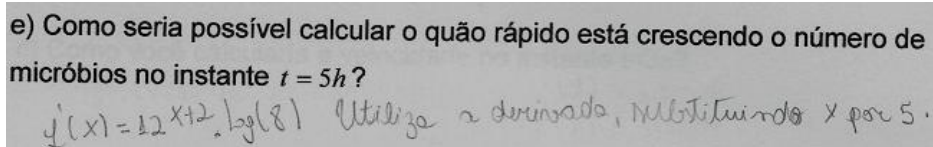 e) Como seria possível calcular o quão rápido está crescendo o número de
micróbios no instante t = 5h?
y'(x) = 12^{x+2}.log(8) Utiliza a derivada, substituindo x por 5.